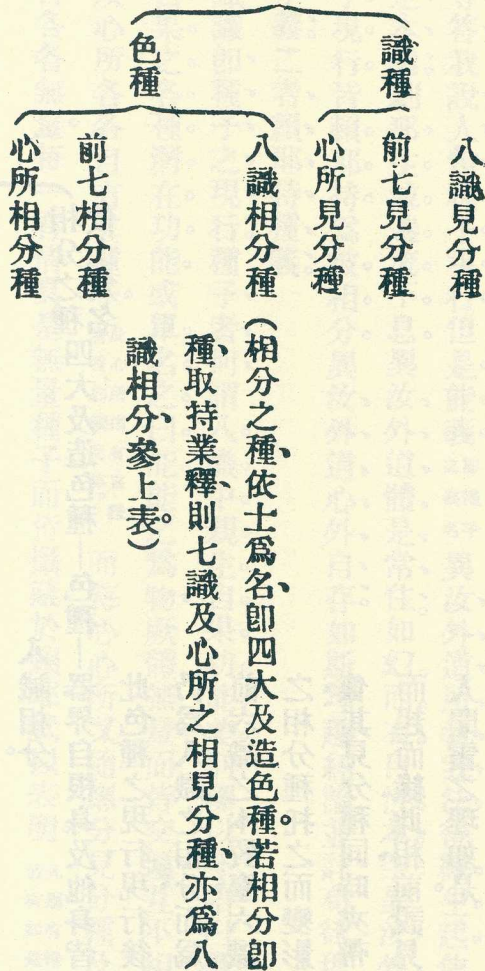 識種
八識見分種
前七見分種
心所見分種
色種
八識相分種
（相分之種、依士爲名、卽四大及造色種。若相分卽
種、取持業釋、則七識及心所之相見分種、亦爲八
識相分、參上表。）
前七相分種
心所相分種